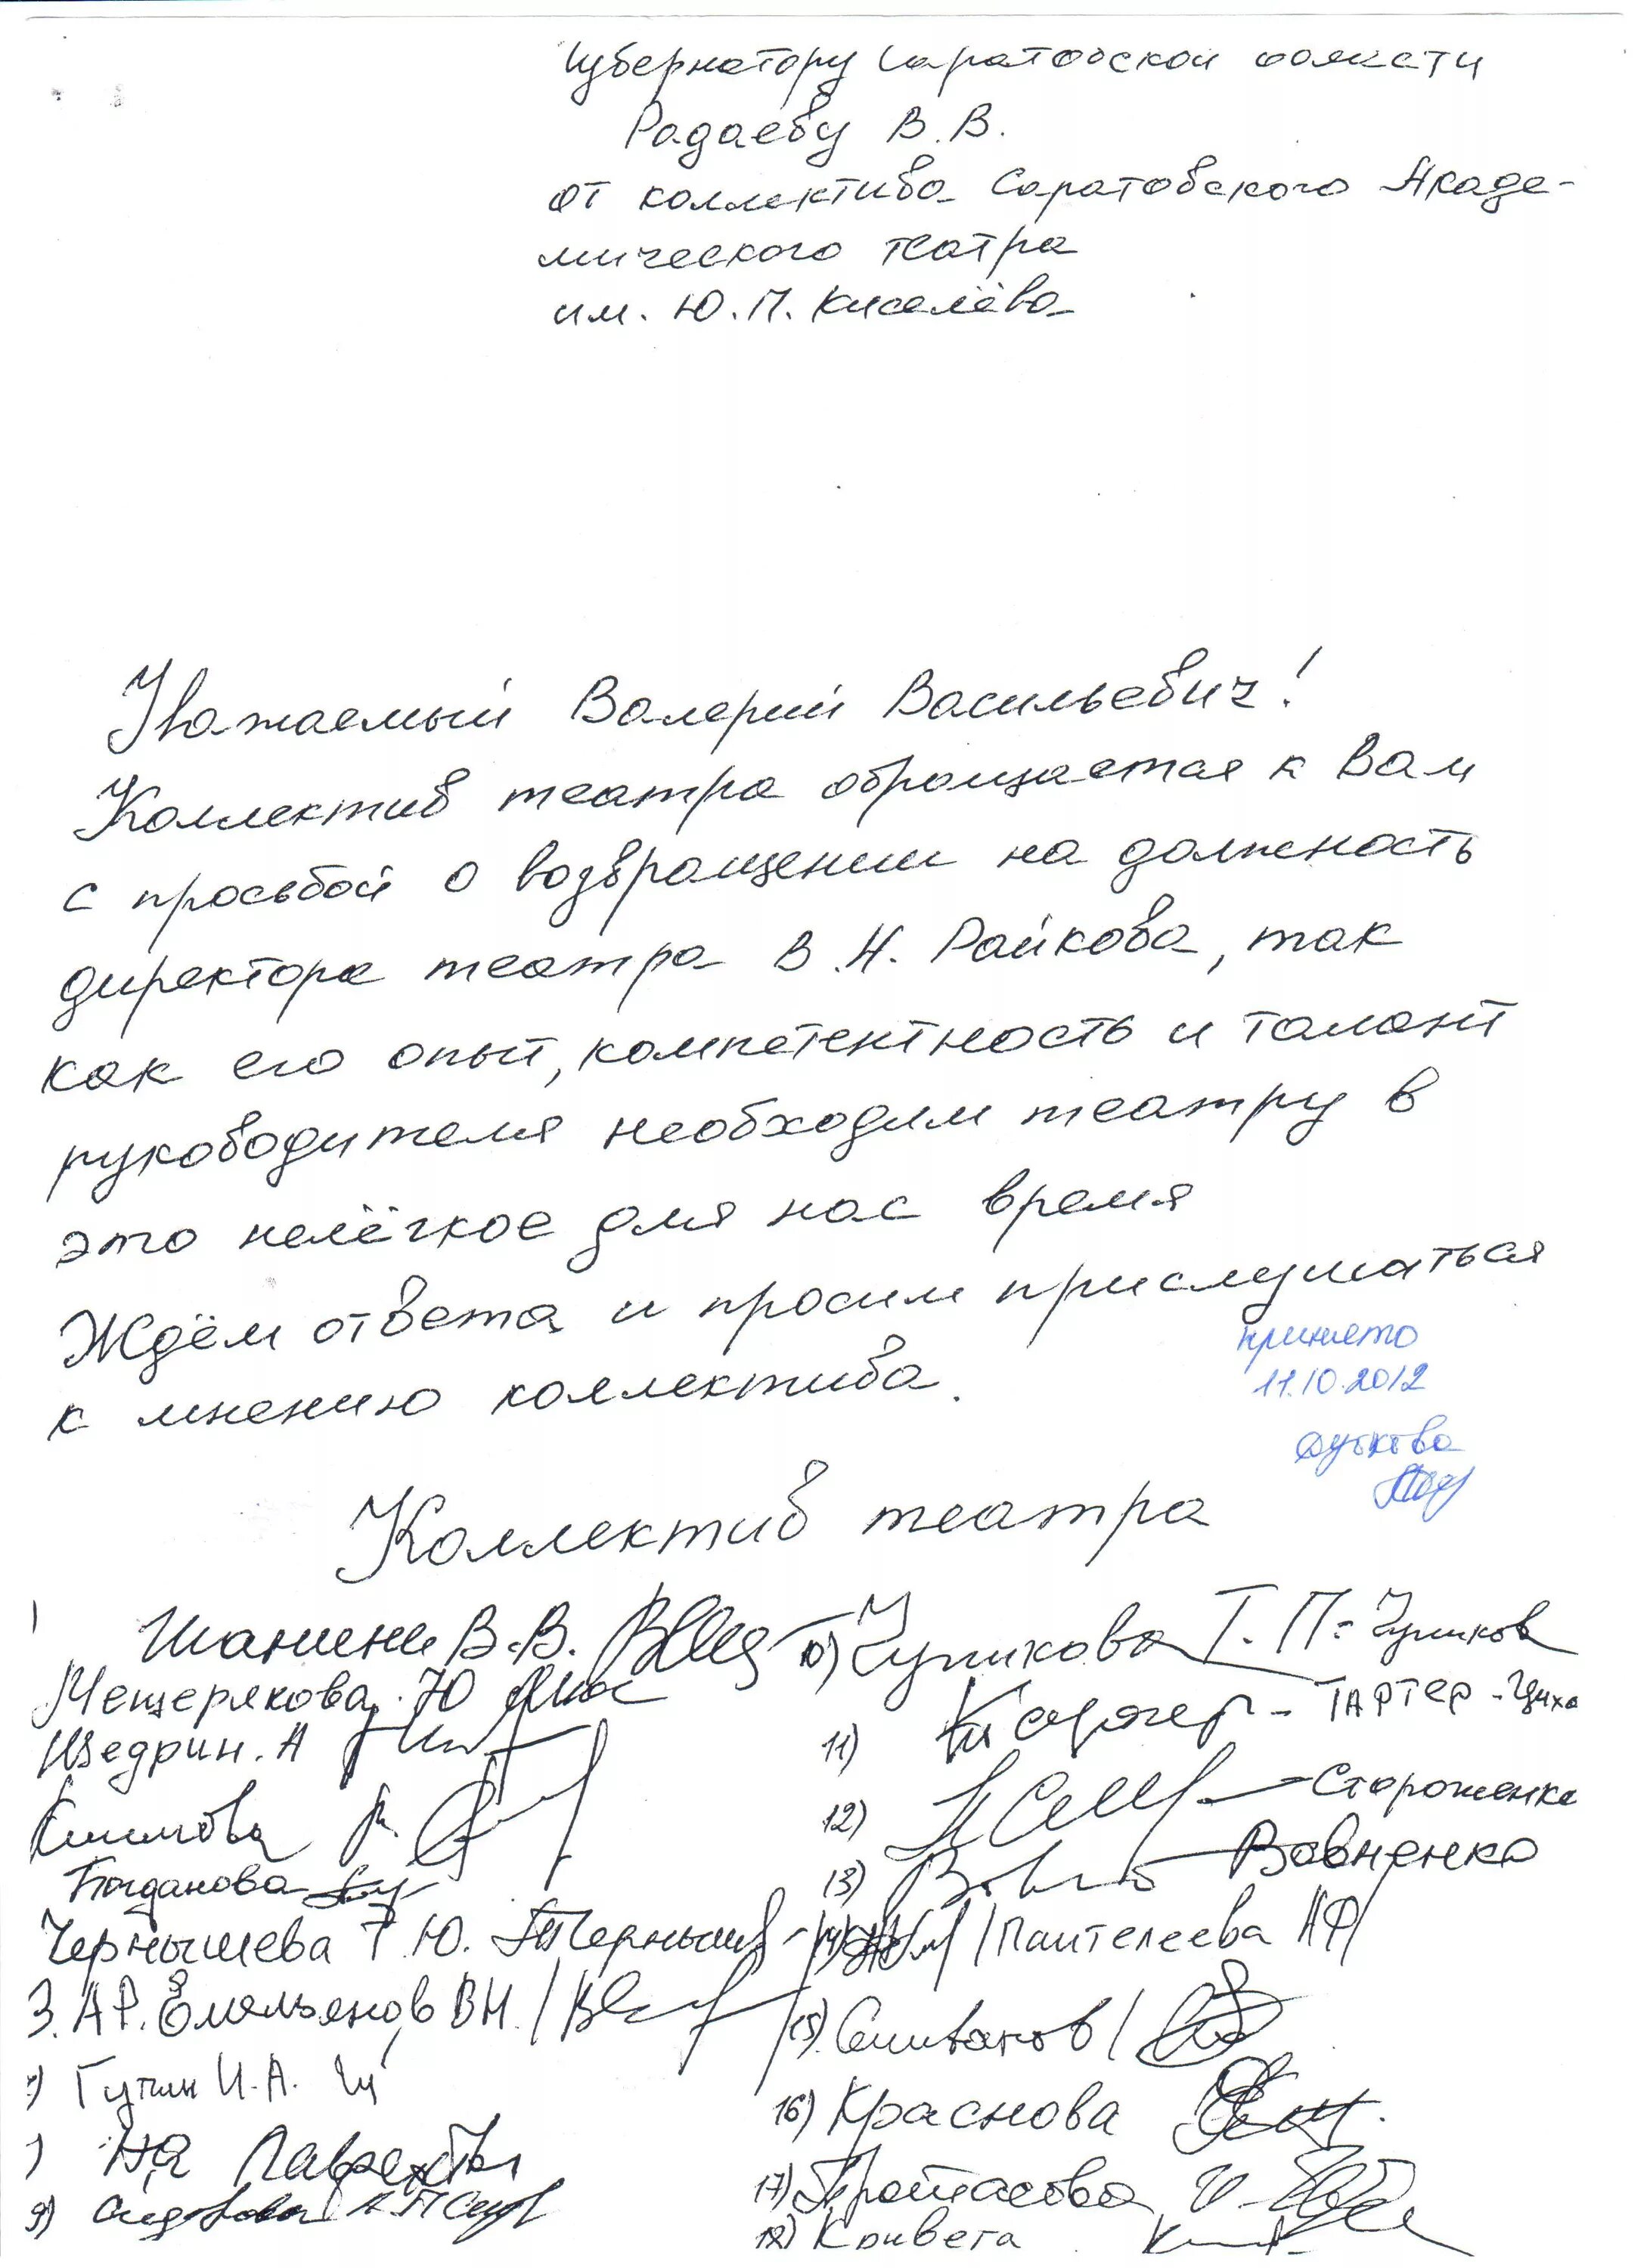 Губернатору Саратовской области
Радаеву В.В.
от коллектива Саратовского Акаде-
мического театра
им. Ю.П. Киселёва
Уважаемый Валерий Васильевич!
Коллектив театра обращается к Вам
с просьбой о возвращении на должность
директора театра В.Н. Райкова, так
как его опыт, компетентность и талант
руководителя необходим театру в
это нелёгкое для нас время
Ждём ответа и просим прислушаться
к мнению коллектива.
принято
11.10.2012
Коллектив театра
Шанина В.В.
Мещерякова Ю
Щедрин А
Климова
Богданова
Чернышева Т.Ю.
З.А Р. Емельянов ВН.
Гутин И.А.
9) Сидорова
10) Чупикова Т.П.
11)
12) Стороженко
13) Вовненко
14) Пантелеева НФ
15) Селиванов
16) Краснова
17) Протасова
18) Кривега